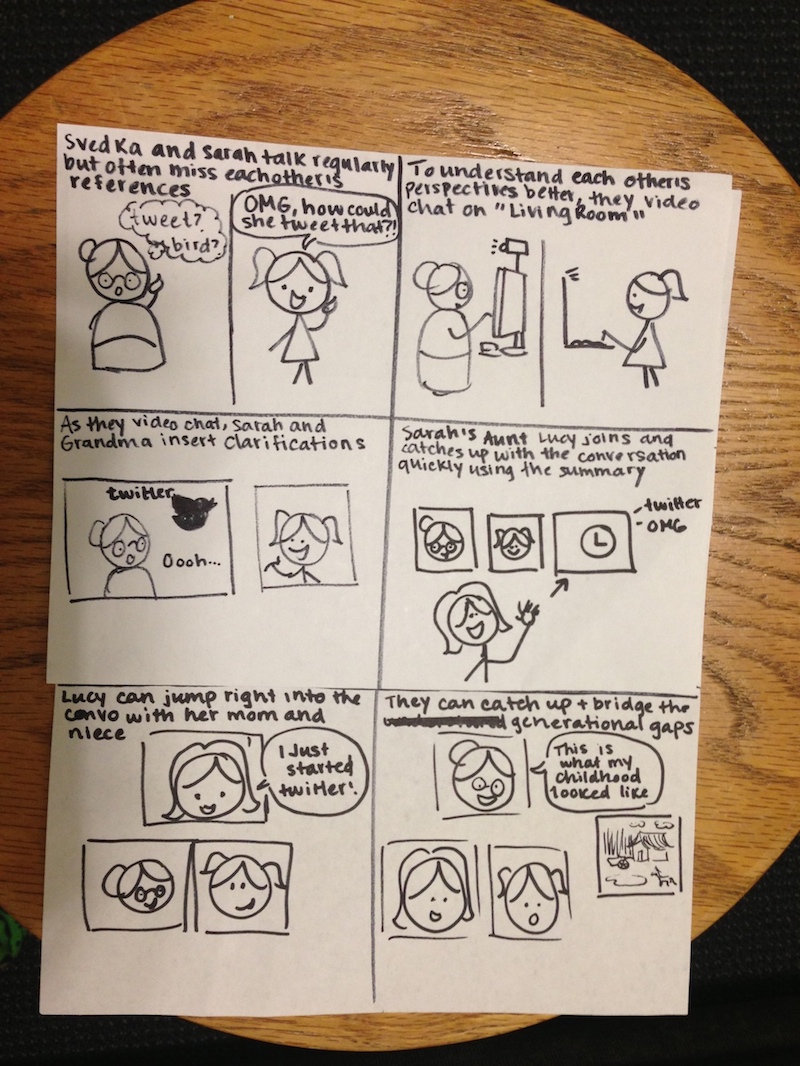 Svedka and Sarah talk regularly
but often miss eachother's
references
tweet?
bird?
OMG, how could
she tweet that?!
To understand each other's
perspectives better, they video
chat on "Living Room"
As they video chat, Sarah and
Grandma insert clarifications
twitter
Oooh...
Sarah's Aunt Lucy joins and
catches up with the conversation
quickly using the summary
- twitter
- OMG
Lucy can jump right into the
convo with her mom and
niece
I Just
started
twitter!
They can catch up + bridge the
generational gaps
This is
what my
childhood
looked like